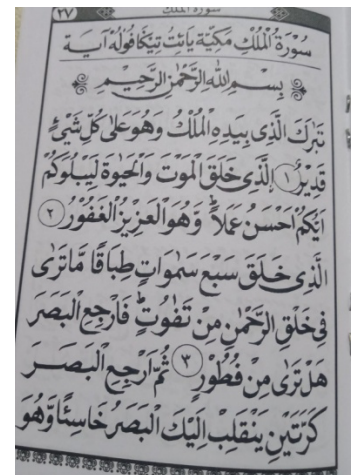 ٢٧ سورة الملك
سُوْرَةُ الْمُلْكِ مَكِيَّة يَائِتُ تِيْكَا فُوْلُه آيَة
بِسْمِ اللهِ الرَّحْمٰنِ الرَّحِيْمِ
تَبٰرَكَ الَّذِى بِيَدِهِ الْمُلْكُ وَهُوَ عَلٰى كُلِّ شَيْئٍ
قَدِيْرٌ ١ اِلَّذِى خَلَقَ الْمَوْتَ وَالْحَيٰوةَ لِيَبْلُوَكُمْ
اَيُّكُمْ اَحْسَنُ عَمَلًا ۗ وَهُوَ الْعَزِيْزُ الْغَفُوْرُ ٢
الَّذِى خَلَقَ سَبْعَ سَمٰوَاتٍ طِبَاقًا مَاتَرٰى
فِى خَلْقِ الرَّحْمٰنِ مِنْ تَفٰوُتٍ ۗ فَارْجِعِ الْبَصَرَ
هَلْ تَرٰى مِنْ فُطُوْرٍ ٣ ثُمَّ ارْجِعِ الْبَصَرَ
كَرَّتَيْنِ يَنْقَلِبْ اِلَيْكَ الْبَصَرُ خَاسِئًا وَّهُوَ